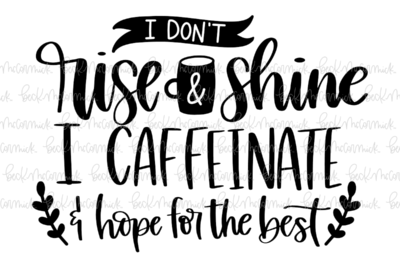 I DON'T
rise & shine
I CAFFEINATE
& hope for the best